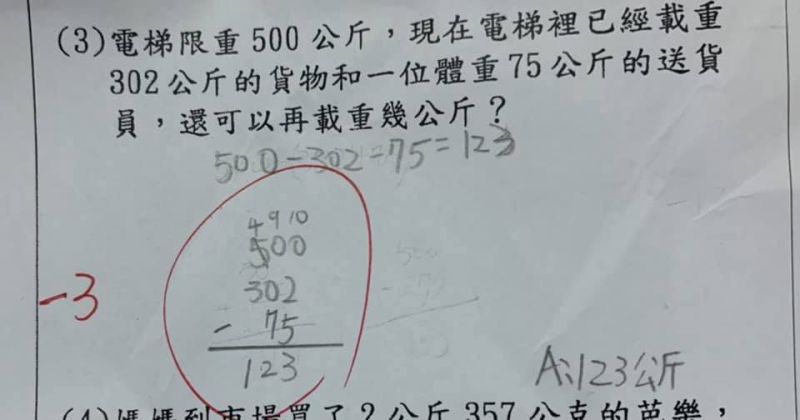 (3)電梯限重500公斤，現在電梯裡已經載重
302公斤的貨物和一位體重75公斤的送貨
員，還可以再載重幾公斤？
500-302=75=123
4 9 10
500
302
- 75
123
-3
A:123公斤
(4)媽媽到市場買了2公斤357公克的芭樂，